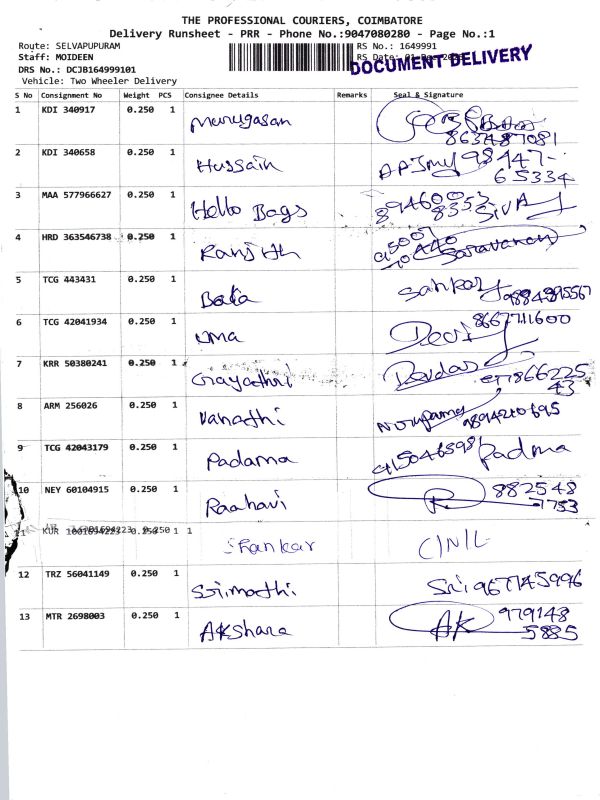 THE PROFESSIONAL COURIERS, COIMBATORE
Delivery Runsheet - PRR - Phone No.:9047080280 - Page No.:1
Route: SELVAPUPURAM RS No.: 1649991
Staff: MOIDEEN RS Date:
DOCUMENT DELIVERY
DRS No.: DCJB164999101
Vehicle: Two Wheeler Delivery
S No Consignment No Weight PCS Consignee Details Remarks Seal & Signature
1 KDI 340917 0.250 1 Murugasan
8637487081
2 KDI 340658 0.250 1 Hussain 98447-
65334
3 MAA 577966627 0.250 1 Hello Bags 894600
8353 SIVA
4 HRD 363546738 0.250 1 Ranjith Saravanan
5 TCG 443431 0.250 1 Bala Sankar 9884395567
6 TCG 42041934 0.250 1 uma Devi 8667711600
7 KRR 50380241 0.250 1 Gayathri Devdas 
8 ARM 256026 0.250 1 Vanathi Nirupama 9894210695
9 TCG 42043179 0.250 1 Padama 9150465981 Padma
10 NEY 60104915 0.250 1 Raahavi R 882548
1753
11 KUR 0.250 1 Shankar
12 TRZ 56041149 0.250 1 Srimathi Sri 9677145996
13 MTR 2698003 0.250 1 Akshara AK 979148
5885